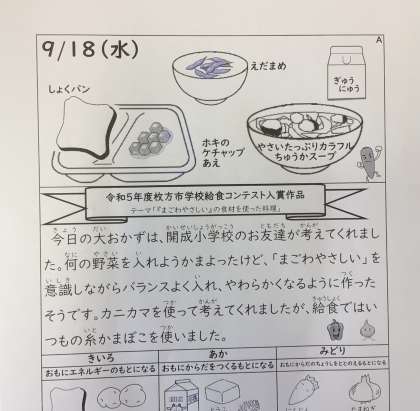 9/18(水)
A
しょくパン
えだまめ
ぎゅう
にゅう
ホキの
ケチャップ
あえ
やさいたっぷりカラフル
ちゅうかスープ
令和5年度枚方市学校給食コンテスト入賞作品
テーマ「『まごわやさしい』の食材を使った料理」
今日の大おかずは、開成小学校のお友達が考えてくれまし
た。何の野菜を入れようかまよったけど、「まごわやさしい」を
意識しながらバランスよく入れ、やわらかくなるように作った
そうです。カニカマを使って考えてくれましたが、給食ではい
つもの糸かまぼこを使いました。
きいろ
あか
みどり
おもにエネルギーのもとになる
おもにからだをつくるもとになる
おもにからだのちょうしをととのえるもとになる